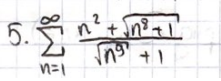 5. \sum_{n=1}^{\infty} \frac{n^2 + \sqrt{n^8 + 1}}{\sqrt{n^9} + 1}